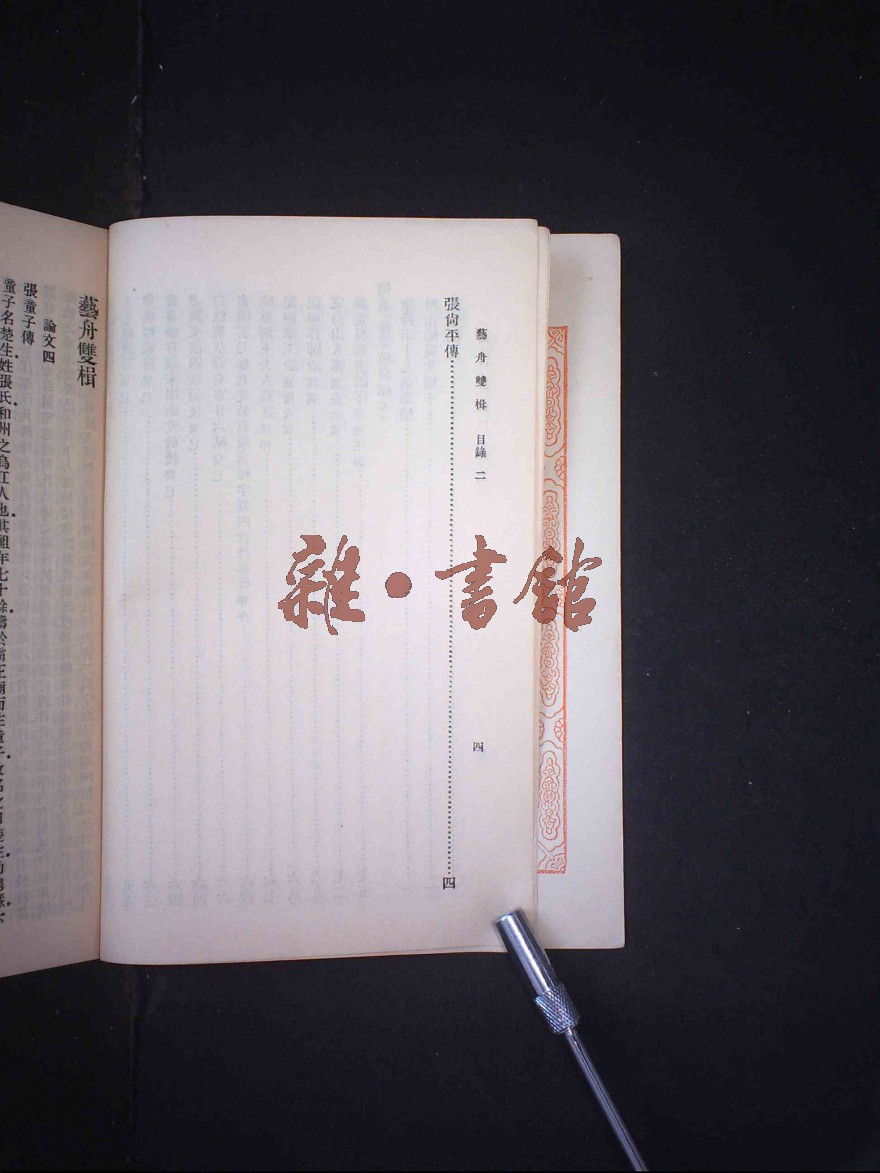 藝舟雙楫 目錄二 四
張尙平傳……四
藝舟雙楫
論文四
張童子傳
童子名楚生姓張氏和州之烏江人也其祖年七十餘禱於
雜•書館